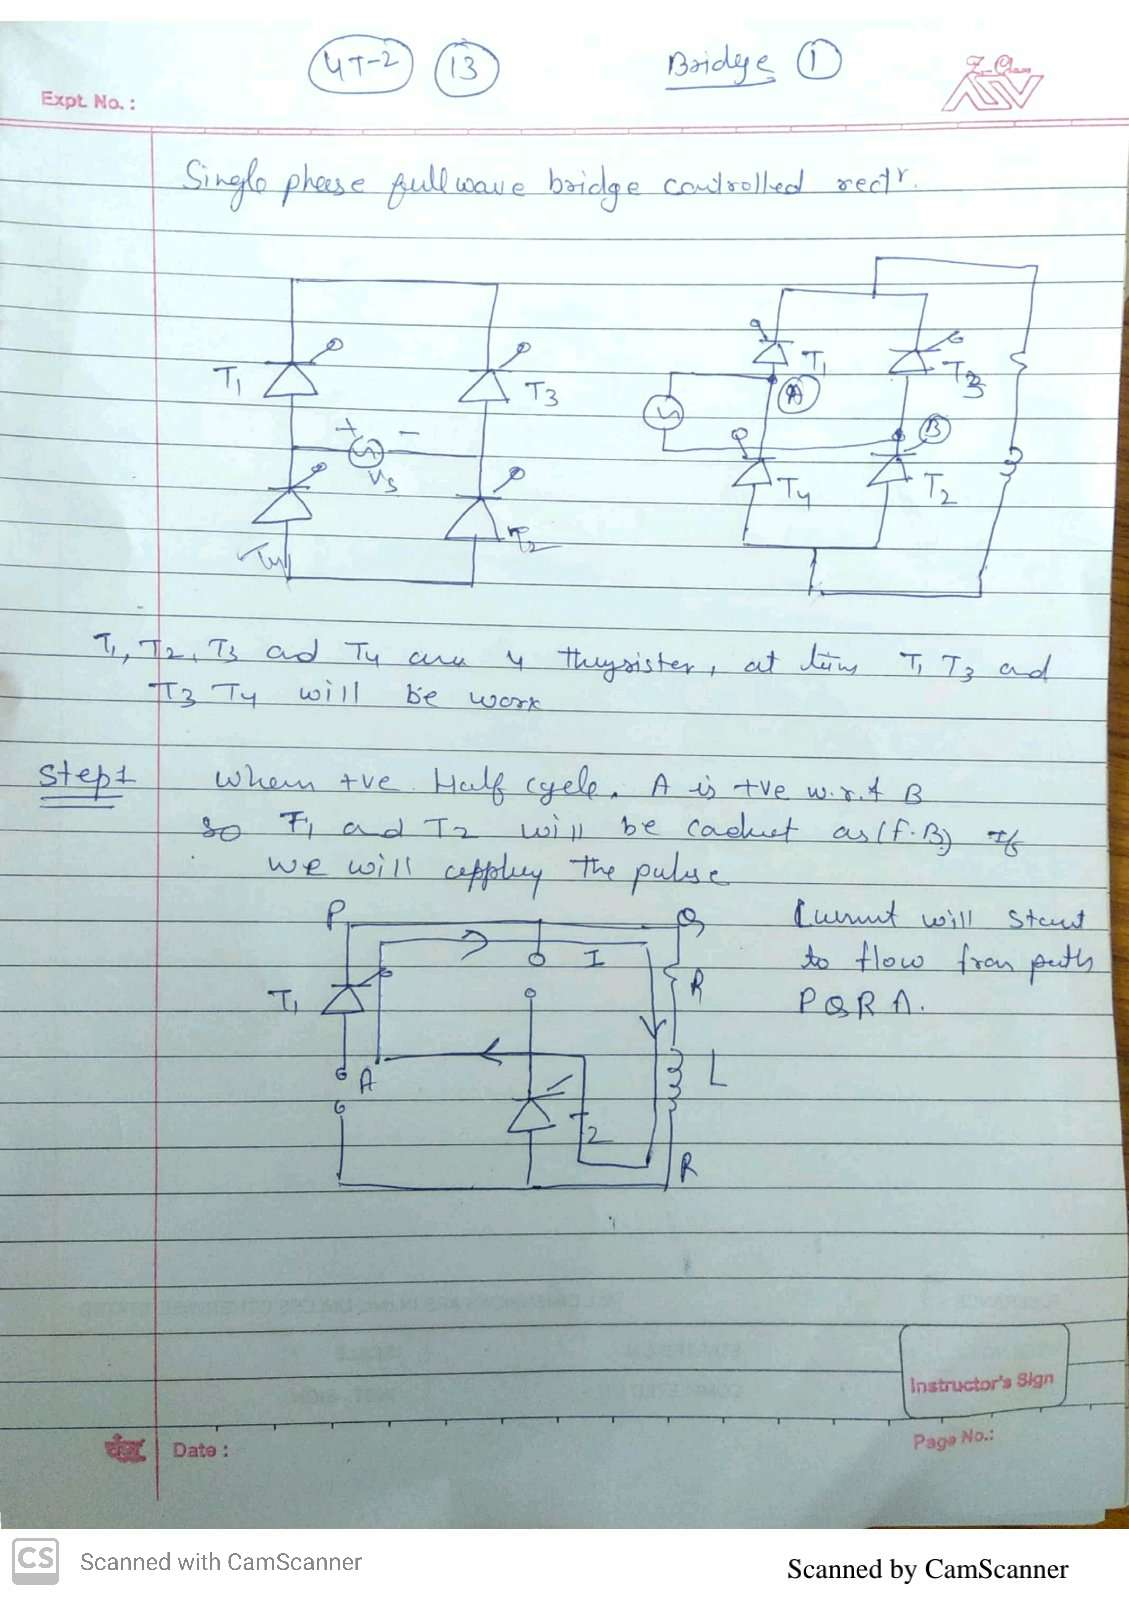 UT-2 13 Bridge 1
Expt. No. :
Single phase full wave bridge controlled rectr.
T1 T3 + - Vs T4 T2
T1 A T3 B T4 T2
T1, T2, T3 and T4 are 4 thyrister, at time T1 T3 and
T3 T4 will be work
Step1 When +ve Half cycle. A is +ve w.r.t B
so T1 and T2 will be coduct as (F.B) If
we will apply the pulse
P Q Current will start
I R to flow from path
T1 PQRA.
A L
T2
R
Instructor's Sign
Date :
Page No.:
CS Scanned with CamScanner
Scanned by CamScanner